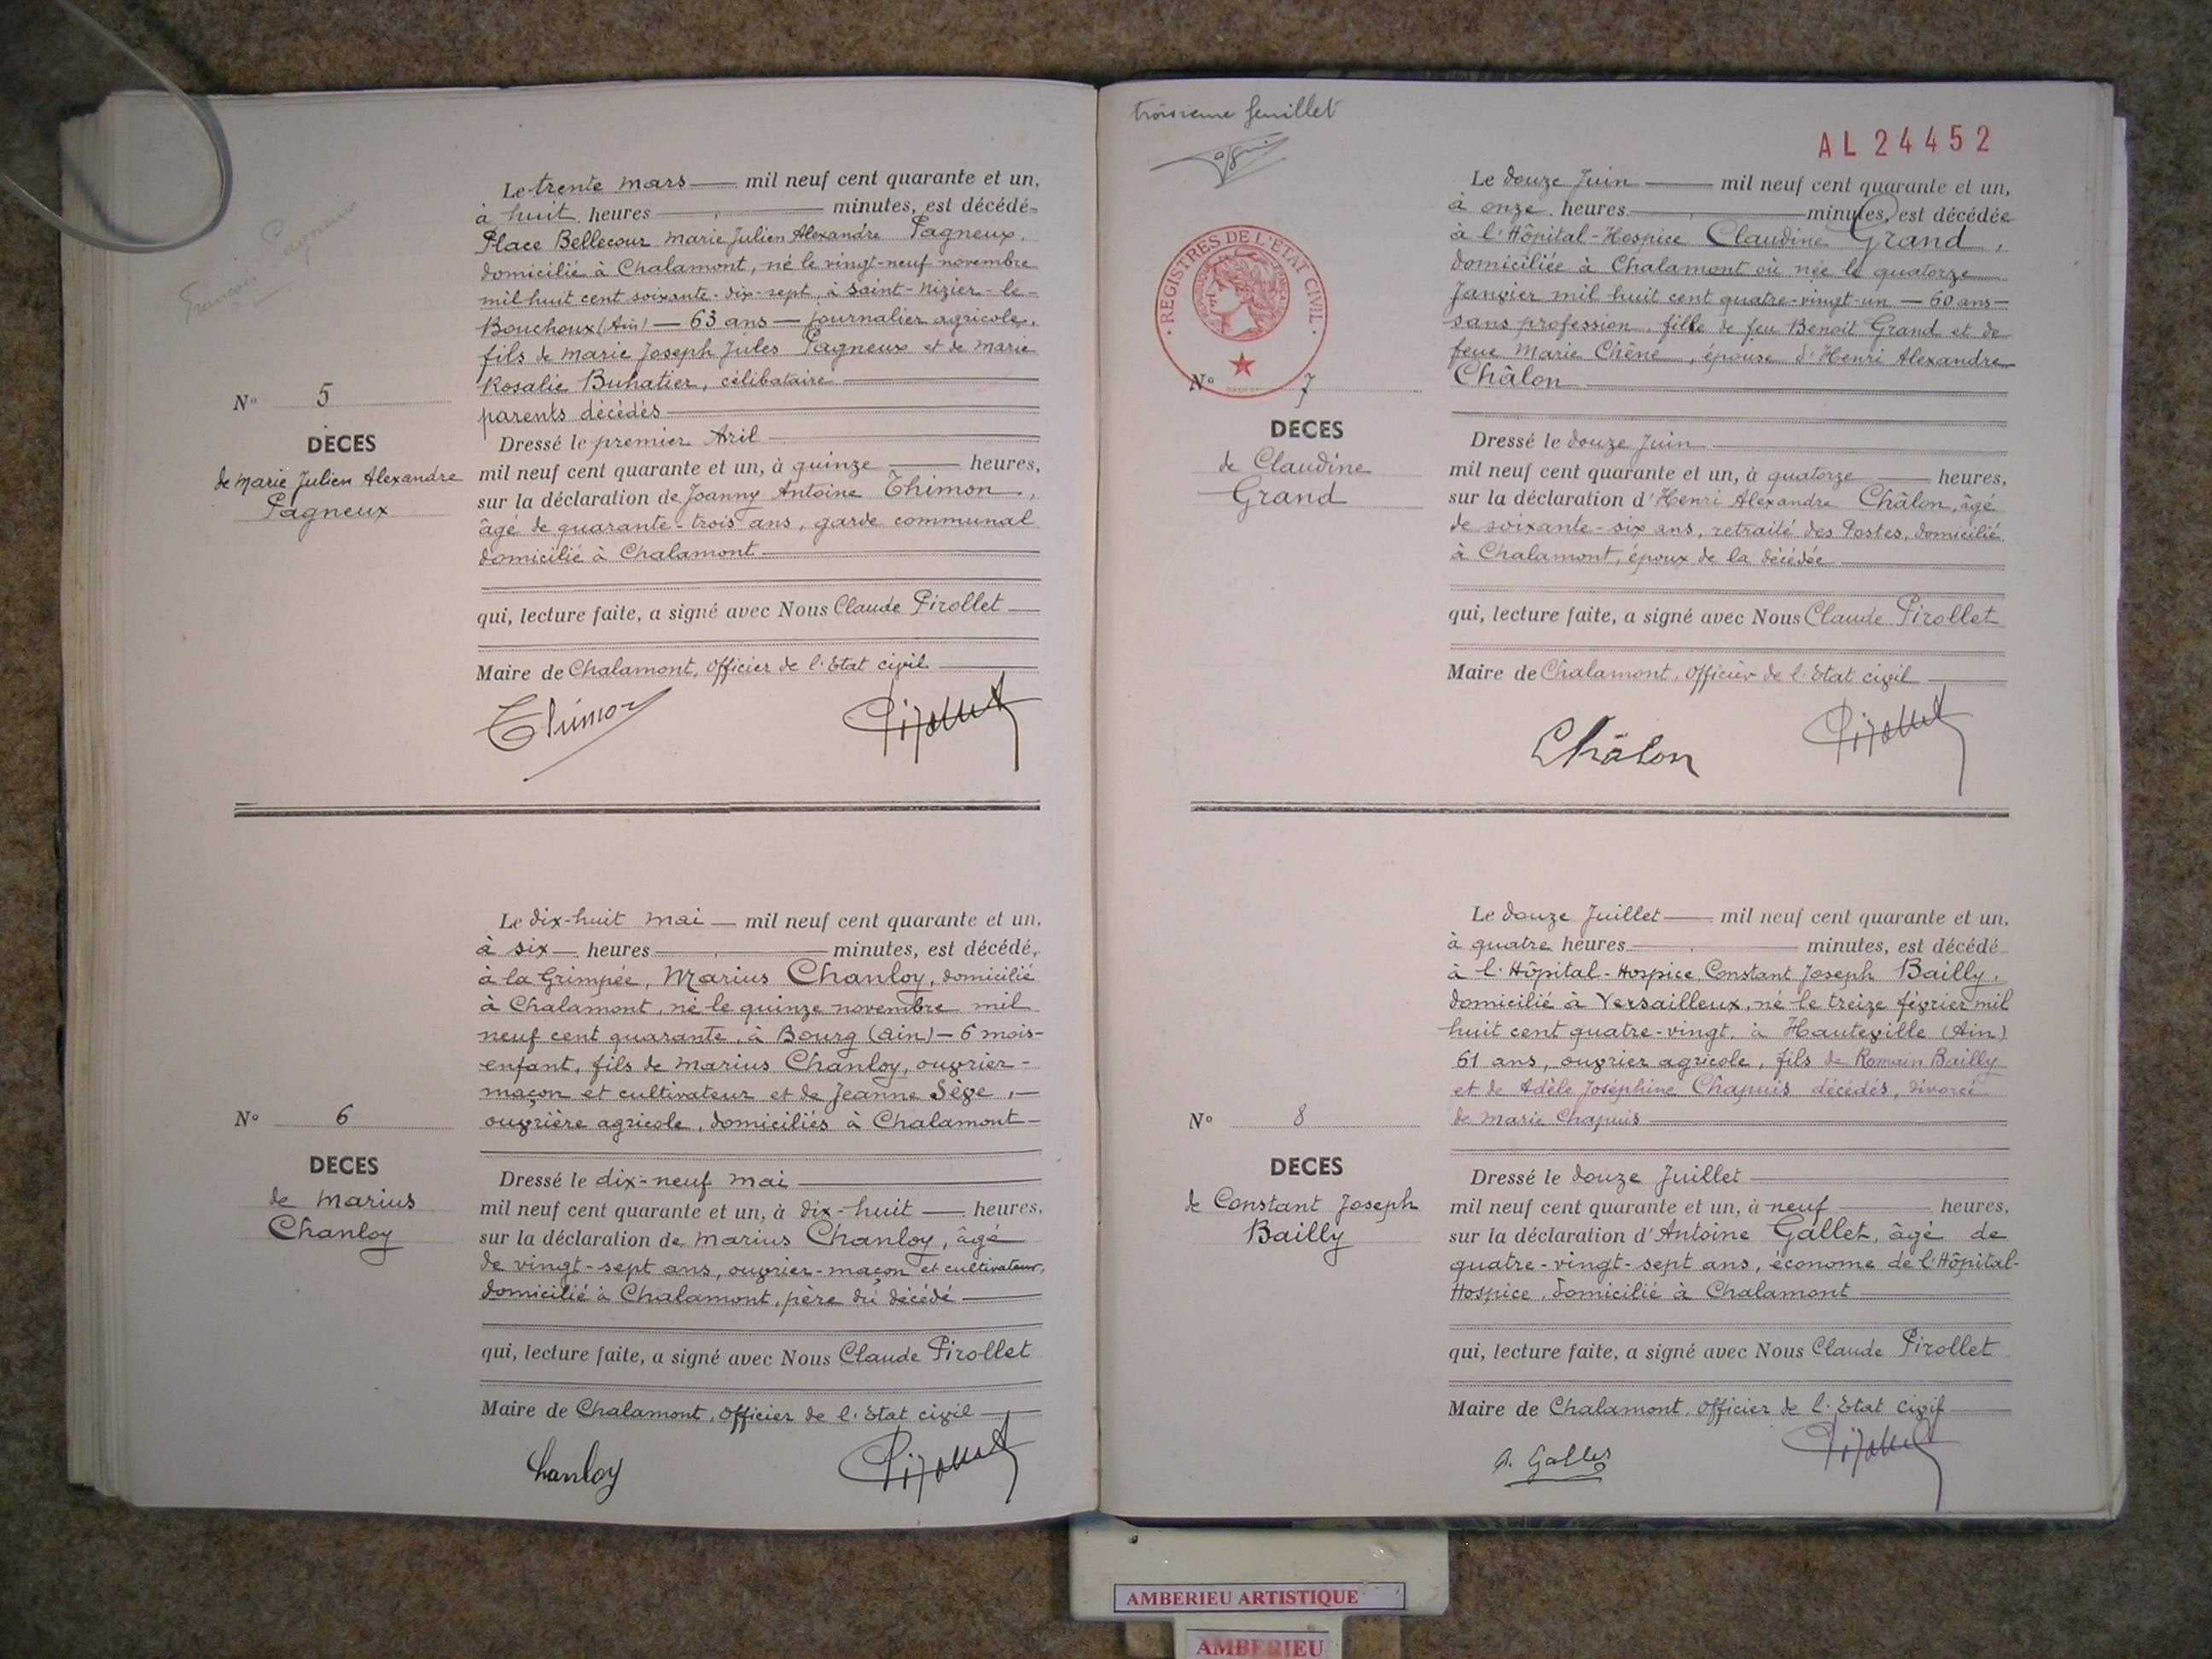 Le trente mars mil neuf cent quarante et un,
à huit heures minutes, est décédé
Place Bellecour Marie Julien Alexandre Pagneux,
domicilié à Chalamont, né le vingt-neuf novembre
mil huit cent soixante-dix-sept, à Saint-Nizier-le-
Bouchoux (Ain) — 63 ans — journalier agricole,
fils de Marie Joseph Jules Pagneux et de Marie
Rosalie Buhatier, célibataire
parents décédés
N° 5
DECES
de Marie Julien Alexandre
Pagneux
Dressé le premier Avril
mil neuf cent quarante et un, à quinze heures,
sur la déclaration de Joanny Antoine Thimon,
âgé de quarante-trois ans, garde communal
domicilié à Chalamont
qui, lecture faite, a signé avec Nous Claude Pirollet
Maire de Chalamont, Officier de l'Etat civil
Thimon Pirollet
Le dix-huit mai — mil neuf cent quarante et un,
à six — heures minutes, est décédé,
à la Grimpée, Marius Chanloy, domicilié
à Chalamont, né le quinze novembre mil
neuf cent quarante, à Bourg (Ain) — 6 mois —
enfant, fils de Marius Chanloy, ouvrier-
maçon et cultivateur et de Jeanne Sève, —
ouvrière agricole, domiciliés à Chalamont —
N° 6
DECES
de Marius
Chanloy
Dressé le dix-neuf mai
mil neuf cent quarante et un, à dix-huit — heures,
sur la déclaration de Marius Chanloy, âgé
de vingt-sept ans, ouvrier-maçon et cultivateur,
domicilié à Chalamont, père du décédé
qui, lecture faite, a signé avec Nous Claude Pirollet
Maire de Chalamont, Officier de l'Etat civil
Chanloy Pirollet
troisieme feuillet
AL 24452
REGISTRES DE L'ÉTAT CIVIL
Le douze Juin mil neuf cent quarante et un,
à onze heures minutes, est décédée
à l'Hôpital-Hospice Claudine Grand,
domiciliée à Chalamont où née le quatorze
Janvier mil huit cent quatre-vingt-un — 60 ans —
sans profession, fille de feu Benoit Grand et de
feue Marie Chêne, épouse d'Henri Alexandre
Châlon
N° 7
DECES
de Claudine
Grand
Dressé le douze Juin
mil neuf cent quarante et un, à quatorze heures,
sur la déclaration d'Henri Alexandre Châlon, âgé
de soixante-six ans, retraité des Postes, domicilié
à Chalamont, époux de la décédée
qui, lecture faite, a signé avec Nous Claude Pirollet
Maire de Chalamont, Officier de l'Etat civil
Châlon Pirollet
Le douze Juillet mil neuf cent quarante et un,
à quatre heures minutes, est décédé
à l'Hôpital-Hospice, Constant Joseph Bailly,
domicilié à Versailleux, né le treize février mil
huit cent quatre-vingt, à Hauteville (Ain)
61 ans, ouvrier agricole, fils de Romain Bailly
et de Adèle Joséphine Chapuis décédés, divorcé
de Marie Chapuis
N° 8
DECES
de Constant Joseph
Bailly
Dressé le douze Juillet
mil neuf cent quarante et un, à neuf heures,
sur la déclaration d'Antoine Gallet, âgé de
quatre-vingt-sept ans, économe de l'Hôpital-
Hospice, domicilié à Chalamont
qui, lecture faite, a signé avec Nous Claude Pirollet
Maire de Chalamont, Officier de l'Etat civil
A. Gallet Pirollet
AMBERIEU ARTISTIQUE
AMBERIEU